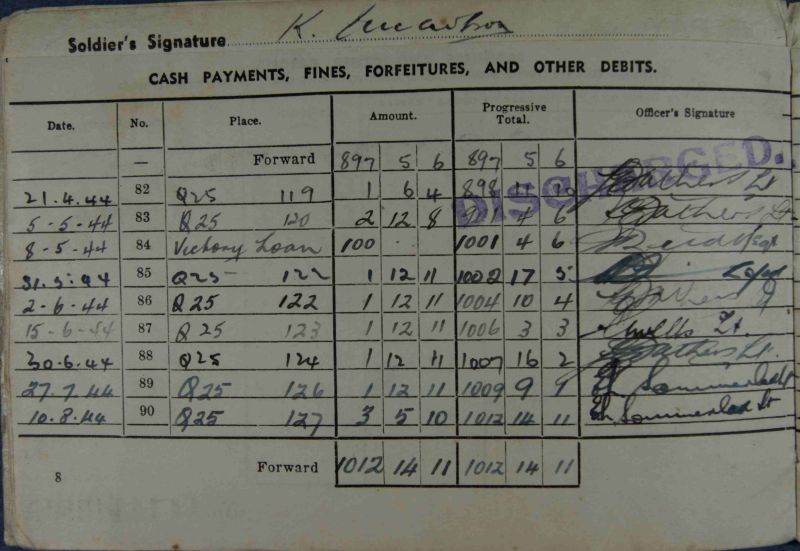 Soldier's Signature K.
CASH PAYMENTS, FINES, FORFEITURES, AND OTHER DEBITS.
Date. No. Place. Amount. Progressive Total. Officer's Signature
— Forward 897 5 6 897 5 6
DISCHARGED.
21.4.44 82 Q25 119 1 6 4 898 11 10 Lt
5-5-44 83 Q25 120 2 12 8 901 4 6 Lt
8-5-44 84 Victory Loan 100 1001 4 6
31.5.44 85 Q25 122 1 12 11 1002 17 5
2-6-44 86 Q25 122 1 12 11 1004 10 4
15-6-44 87 Q25 123 1 12 11 1006 3 3 Lt.
30.6.44 88 Q25 124 1 12 11 1007 16 2 Lt.
27.7.44 89 Q25 126 1 12 11 1009 9 1 Sommerlad Lt
10.8.44 90 Q25 127 3 5 10 1012 14 11 Sommerlad Lt
Forward 1012 14 11 1012 14 11
8